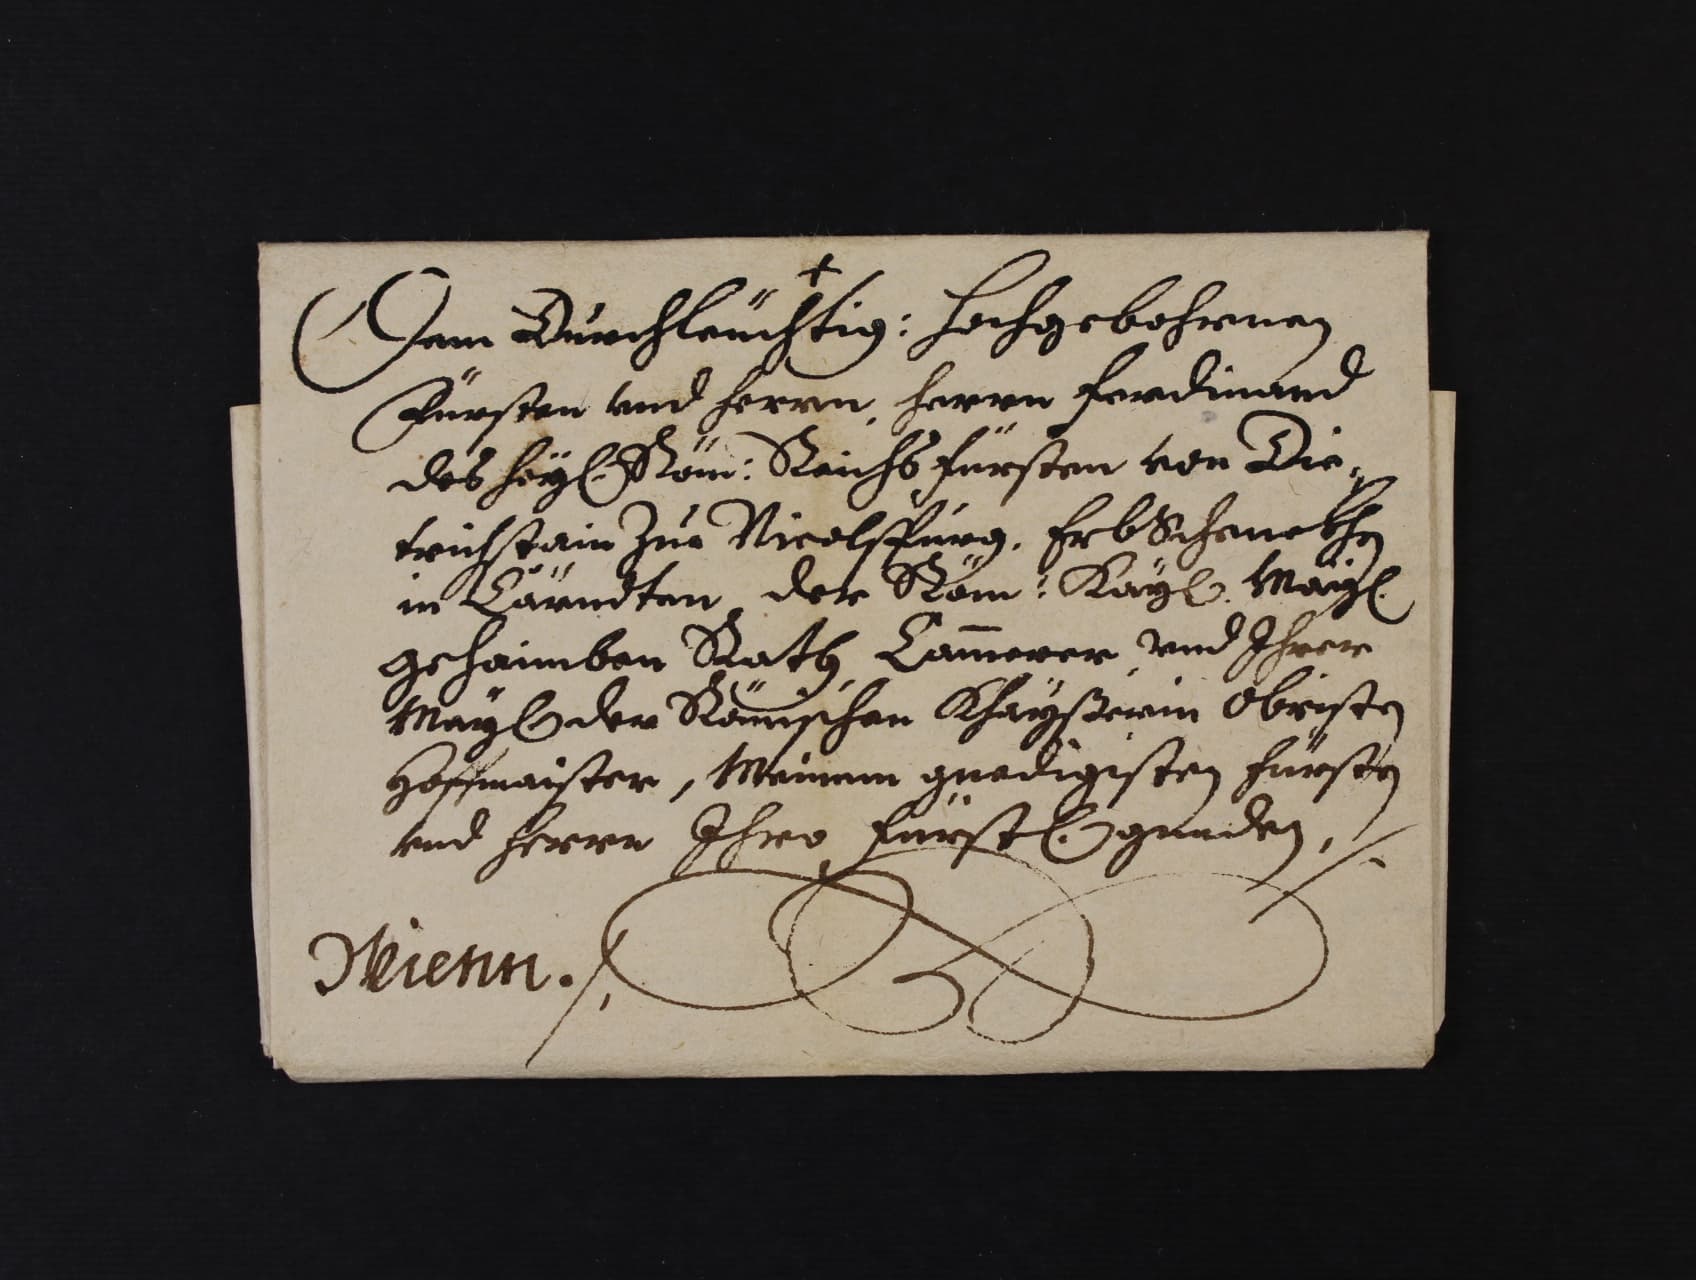 Dem Durchleüchtig: Hochgebohrnen
Fürsten vnd Herrn, Herrn Ferdinand
des heyl. Röm: Reichs fürsten von Die-
trichstain zue Nicolspurg, ErbSchenckhen
in Cärndten, der Röm: Kayl. Mayl.
gehaimben Rath, Camerer, vnd Ihrer
Mayl. der Römischen Khayßerin Obristen
Hoffmaister, Meinem gnedigisten Fürsten
vnd Herrn Ihro fürstl. gnaden,
Wienn.